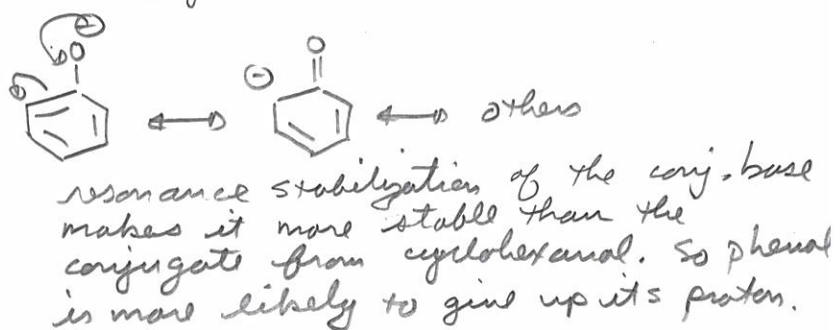 O O
⊖
others
resonance stabilization of the conj. base
makes it more stable than the
conjugate from cyclohexanol. So phenol
is more likely to give up its proton.